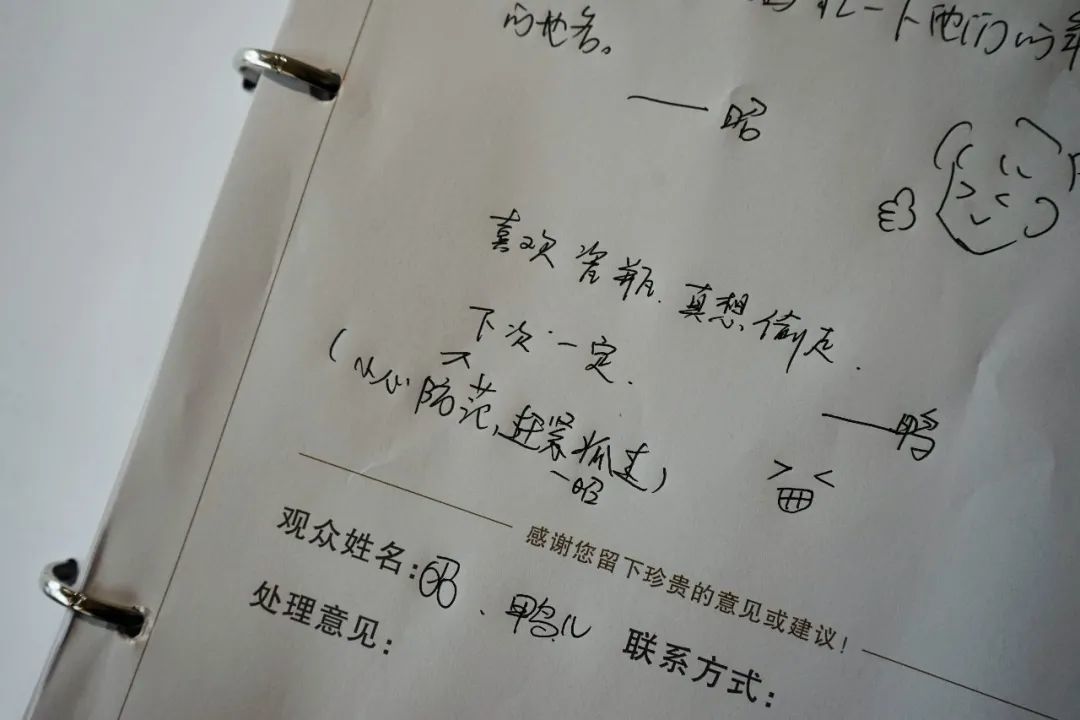 一下他们的
的地名。
——昭
喜欢瓷瓶.真想偷走.
下次一定.
——鸭
(小心防范,赶紧抓走)
—昭
感谢您留下珍贵的意见或建议!
观众姓名:昭、鸭儿 联系方式:
处理意见: